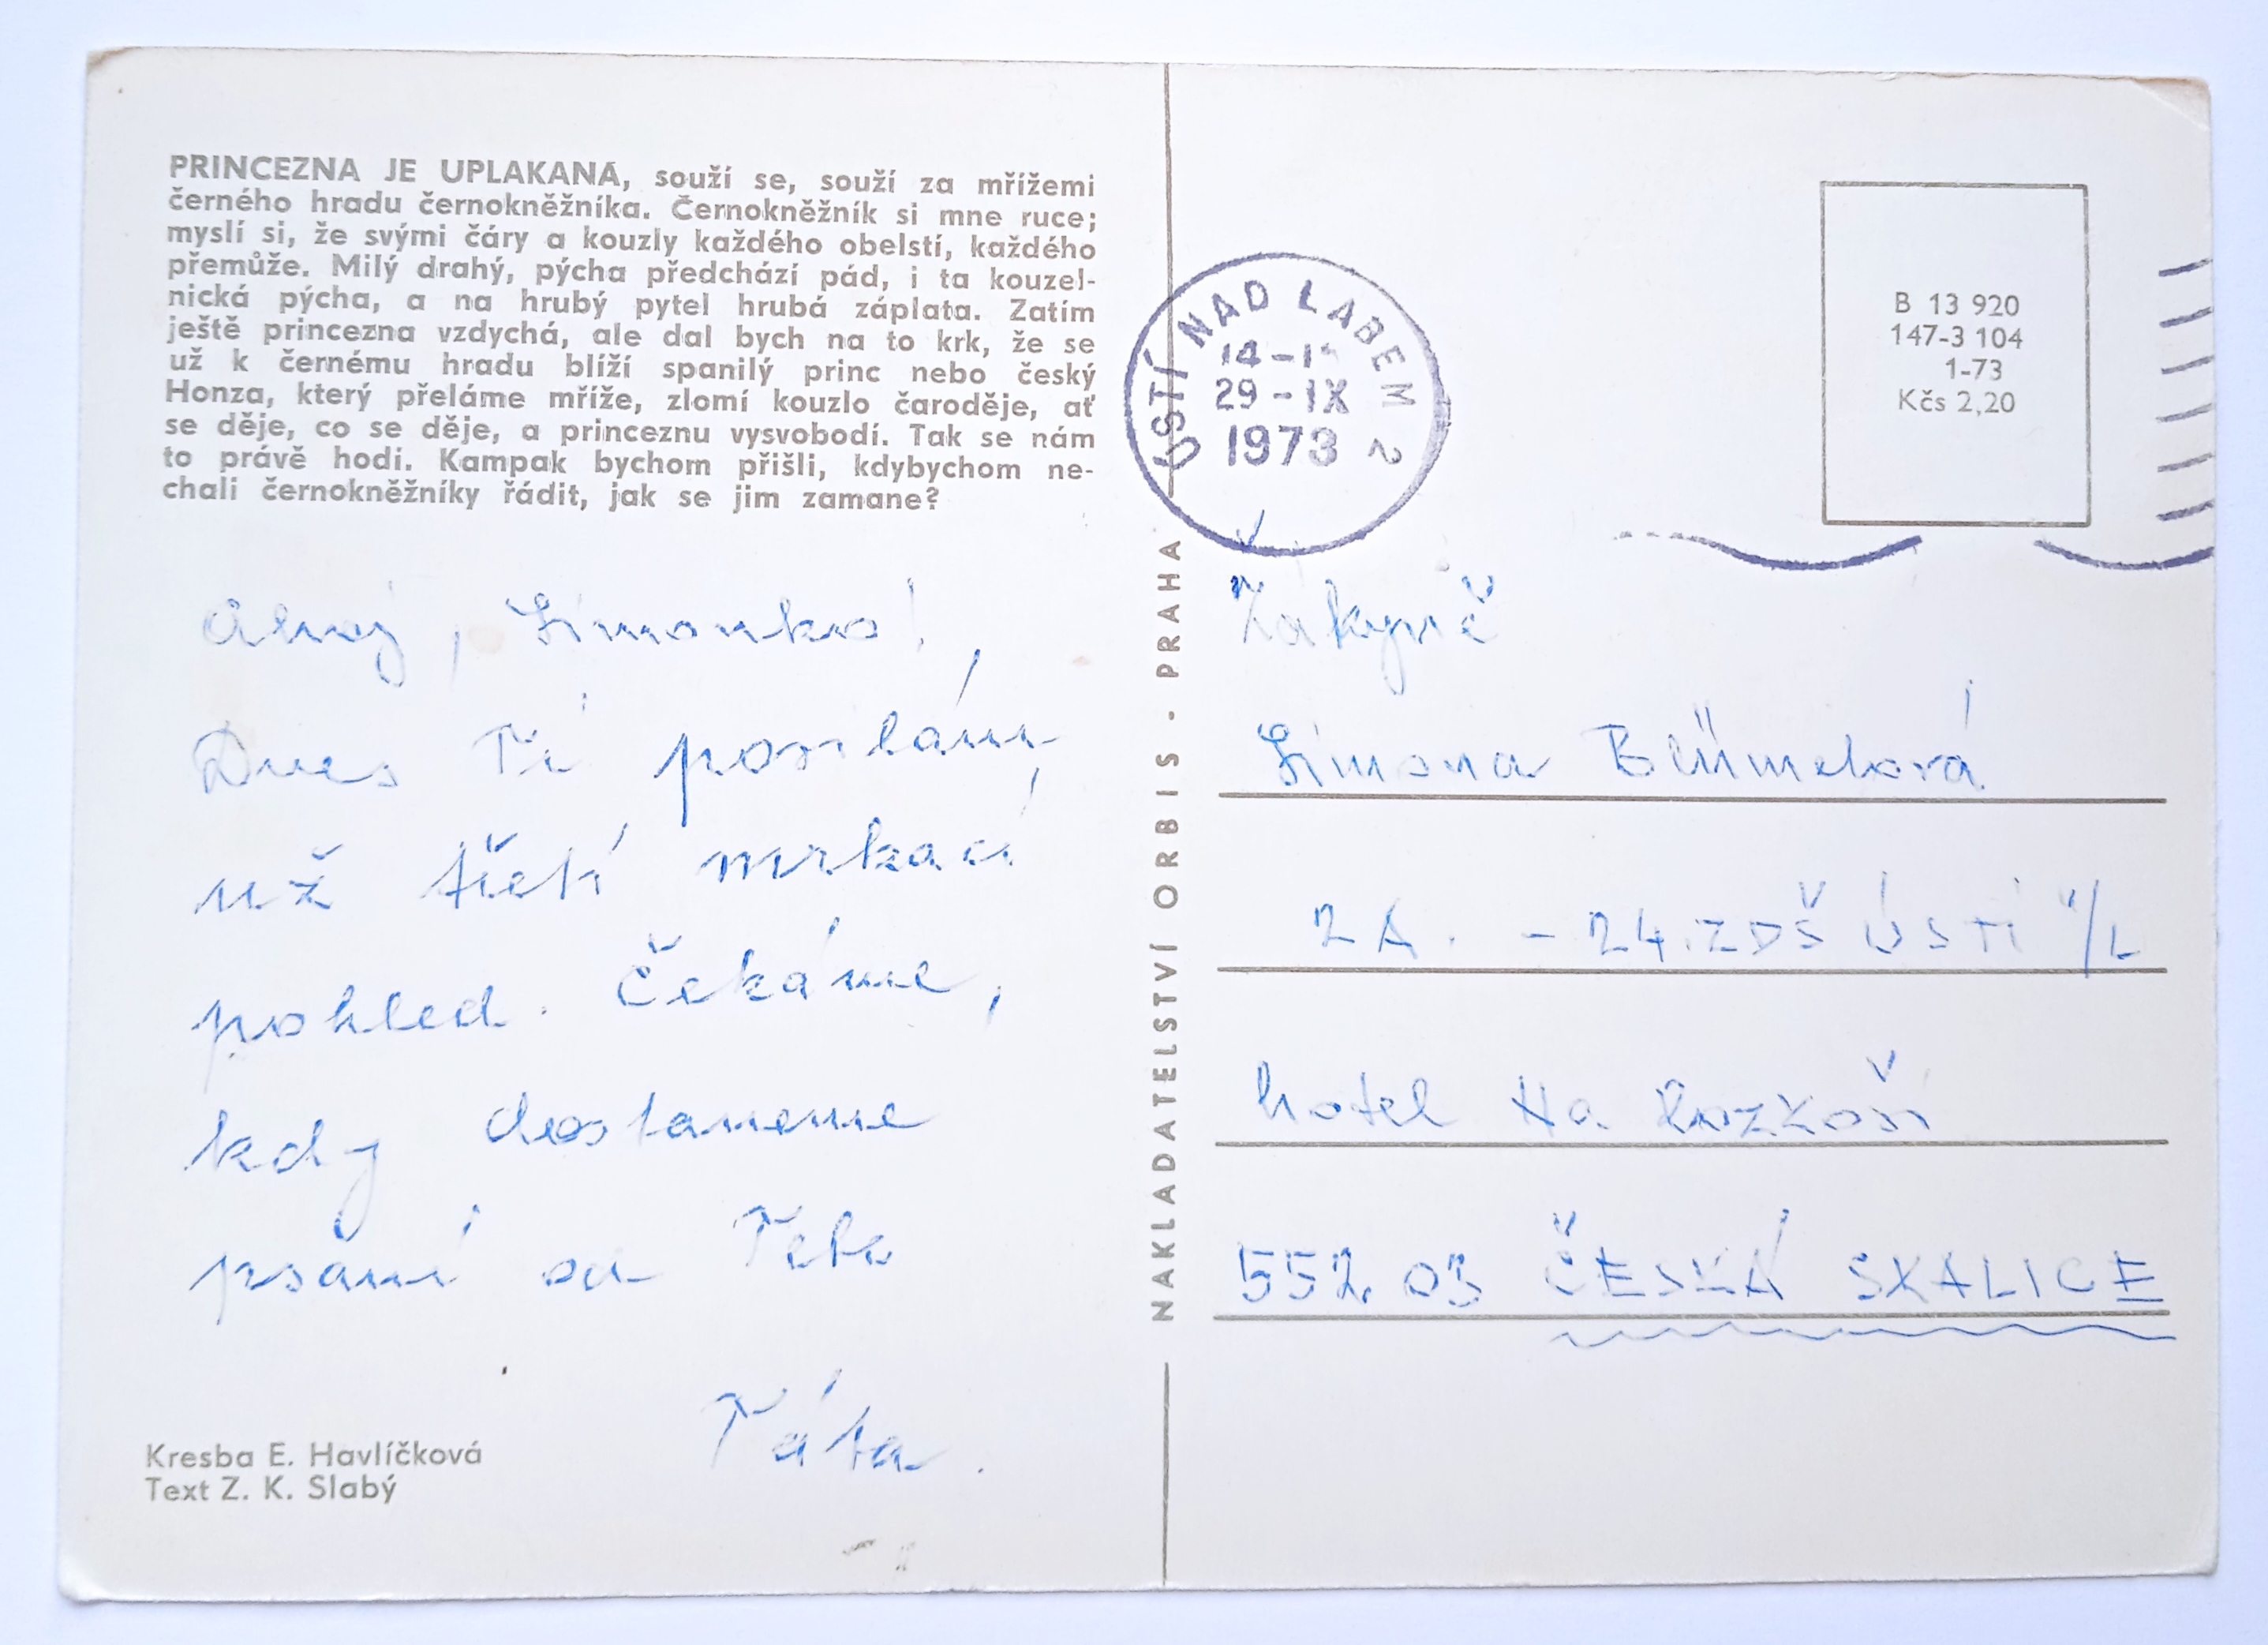 PRINCEZNA JE UPLAKANÁ, souží se, souží za mřížemi
černého hradu černokněžníka. Černokněžník si mne ruce;
myslí si, že svými čáry a kouzly každého obelstí, každého
přemůže. Milý drahý, pýcha předchází pád, i ta kouzel-
nická pýcha, a na hrubý pytel hrubá záplata. Zatím
ještě princezna vzdychá, ale dal bych na to krk, že se
už k černému hradu blíží spanilý princ nebo český
Honza, který přeláme mříže, zlomí kouzlo čaroděje, ať
se děje, co se děje, a princeznu vysvobodí. Tak se nám
to právě hodi. Kampak bychom přišli, kdybychom ne-
chali černokněžníky řádit, jak se jim zamane?
Ahoj, Simonko!
Dnes Ti posílám
už třetí mrkací
pohled. Čekáme,
kdy dostaneme
psaní od Tebe
Táta.
Kresba E. Havlíčková
Text Z. K. Slabý
NAKLADATELSTVÍ ORBIS - PRAHA
ÚSTÍ NAD LABEM 2
29-IX
1973
B 13 920
147-3 104
1-73
Kčs 2,20
Žákyně
Simona Blümelová
2A. - 24. ZDŠ ÚSTÍ n/L
hotel Na Rozkoši
552 03 ČESKÁ SKALICE